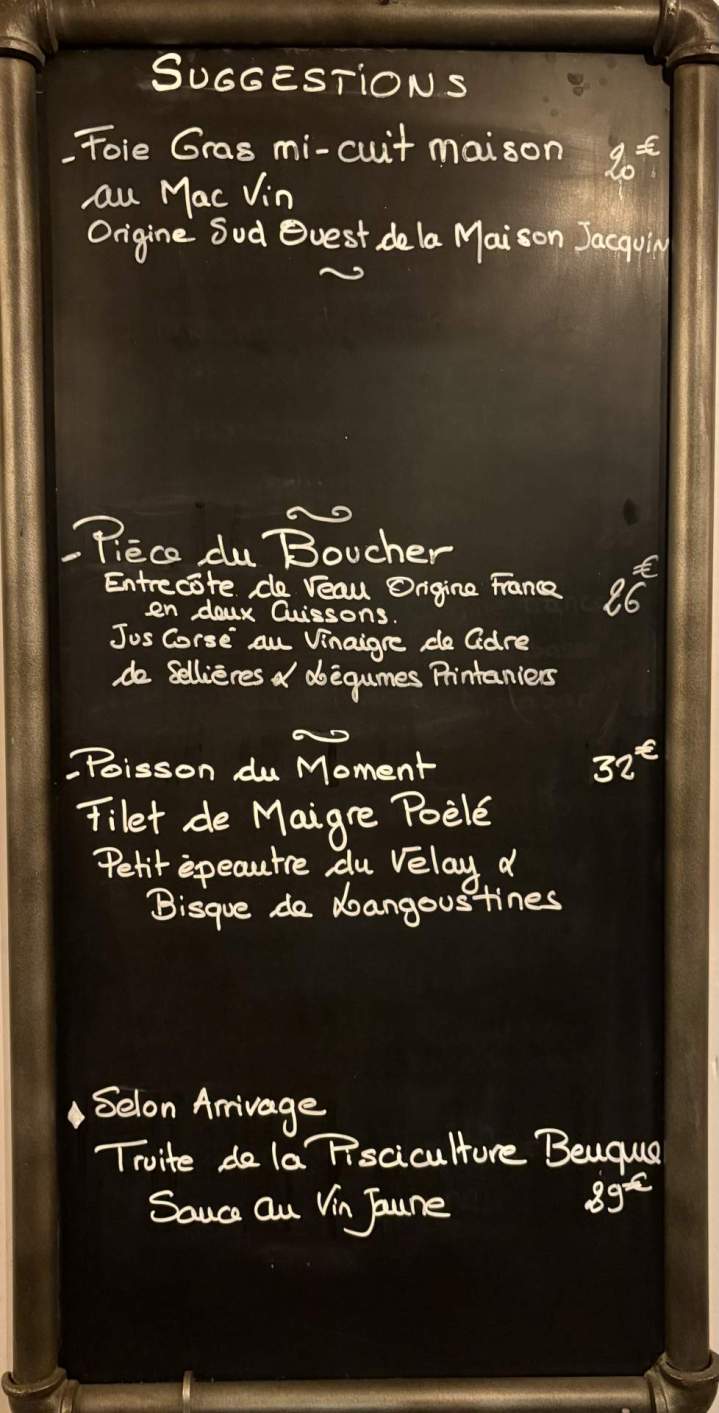 SUGGESTIONS
- Foie Gras mi-cuit maison 20€
au Mac Vin
Origine Sud Ouest de la Maison Jacquin
- Pièce du Boucher
Entrecôte de Veau Origine France 26€
en deux Cuissons.
Jus Corsé au Vinaigre de Cidre
de Sellières & Légumes Printaniers
- Poisson du Moment 32€
Filet de Maigre Poêlé
Petit épeautre du Velay &
Bisque de Langoustines
Selon Arrivage
Truite de la Pisciculture Beuque
Sauce au Vin Jaune 29€